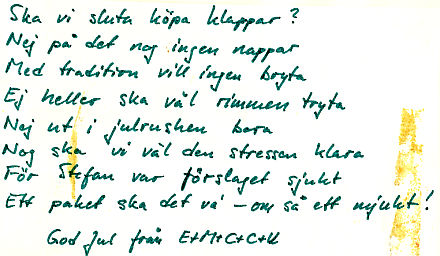 Ska vi sluta köpa klappar?
Nej på det nog ingen nappar
Med tradition vill ingen bryta
Ej heller ska väl rimmen tryta
Nej ut i julrushen bara
Nog ska vi väl den stressen klara
För Stefan var förslaget sjukt
Ett paket ska det va' - om så ett mjukt!
God Jul från E+M+C+C+K